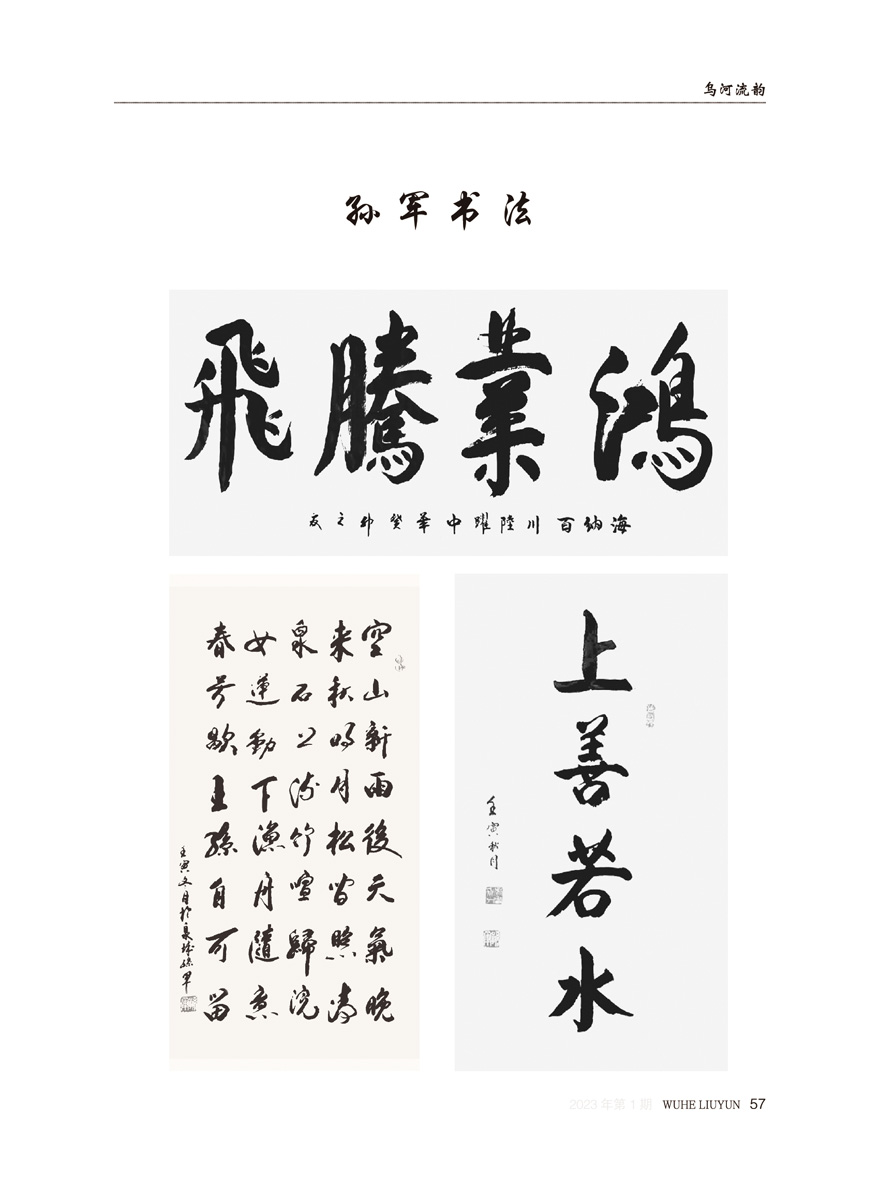 乌河流韵
孙军书法
鴻業騰飛
海纳百川陸躍中華癸卯之友
空山新雨後天氣晚
来秋明月松間照清
泉石上流竹喧歸浣
女蓮動下漁舟隨意
春芳歇王孫自可留
壬寅冬月於泉城孫軍
上善若水
壬寅秋月
2023 年第 1 期 WUHE LIUYUN 57